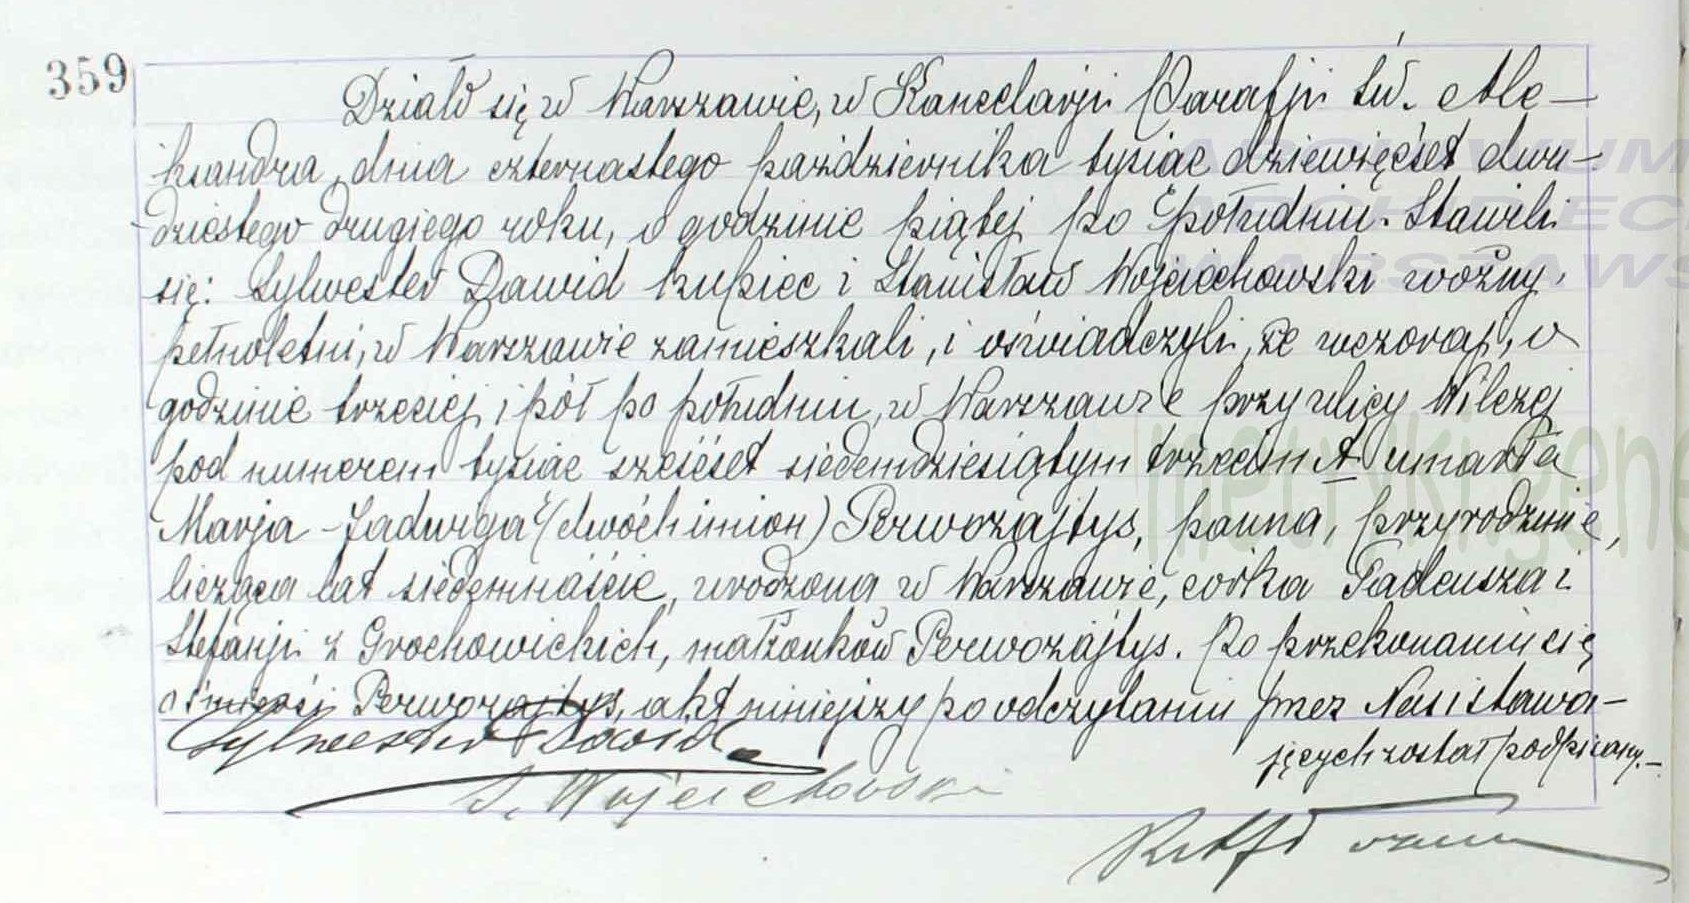 359
Działo się w Warszawie, w Kancelarji Parafji św. Ale-
ksandra, dnia czternastego października tysiąc dziewięćset dwu-
dziestego drugiego roku, o godzinie piątej po południu. Stawili
się: Sylwester Dawid kupiec i Stanisław Wojciechowski woźny,
pełnoletni, w Warszawie zamieszkali, i oświadczyli, że wczoraj, o
godzinie trzeciej i pół po południu, w Warszawie przy ulicy Wilczej
pod numerem tysiąc sześćset siedemdziesiątym trzecim A umarła
Marja-Jadwiga (dwóch imion) Perwozajtys, panna, przyrodzinie,
licząca lat siedemnaście, urodzona w Warszawie, córka Tadeusza i
Stefanji z Grochowickich, małżonków Perwozajtys. Po przekonaniu się
o śmierci Perwozajtys, akt niniejszy po odczytaniu przez Nas i stawa-
jących został podpisany.-
Sylwester Dawid
S. Wojciechowski
ARCHIWUM
WARSZAWS
metryki.gene